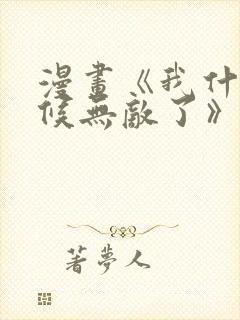 漫畫《我什
候無敵了》
著夢人